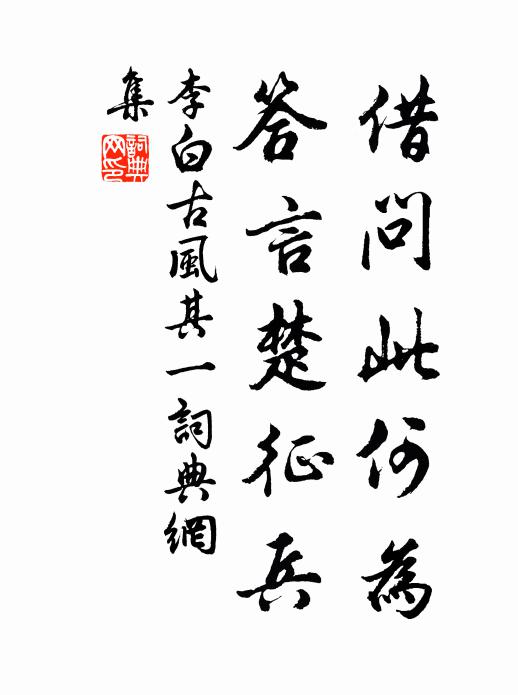 借問此何為
答言楚征兵
李白古風其一詞典網
集
詞典網印